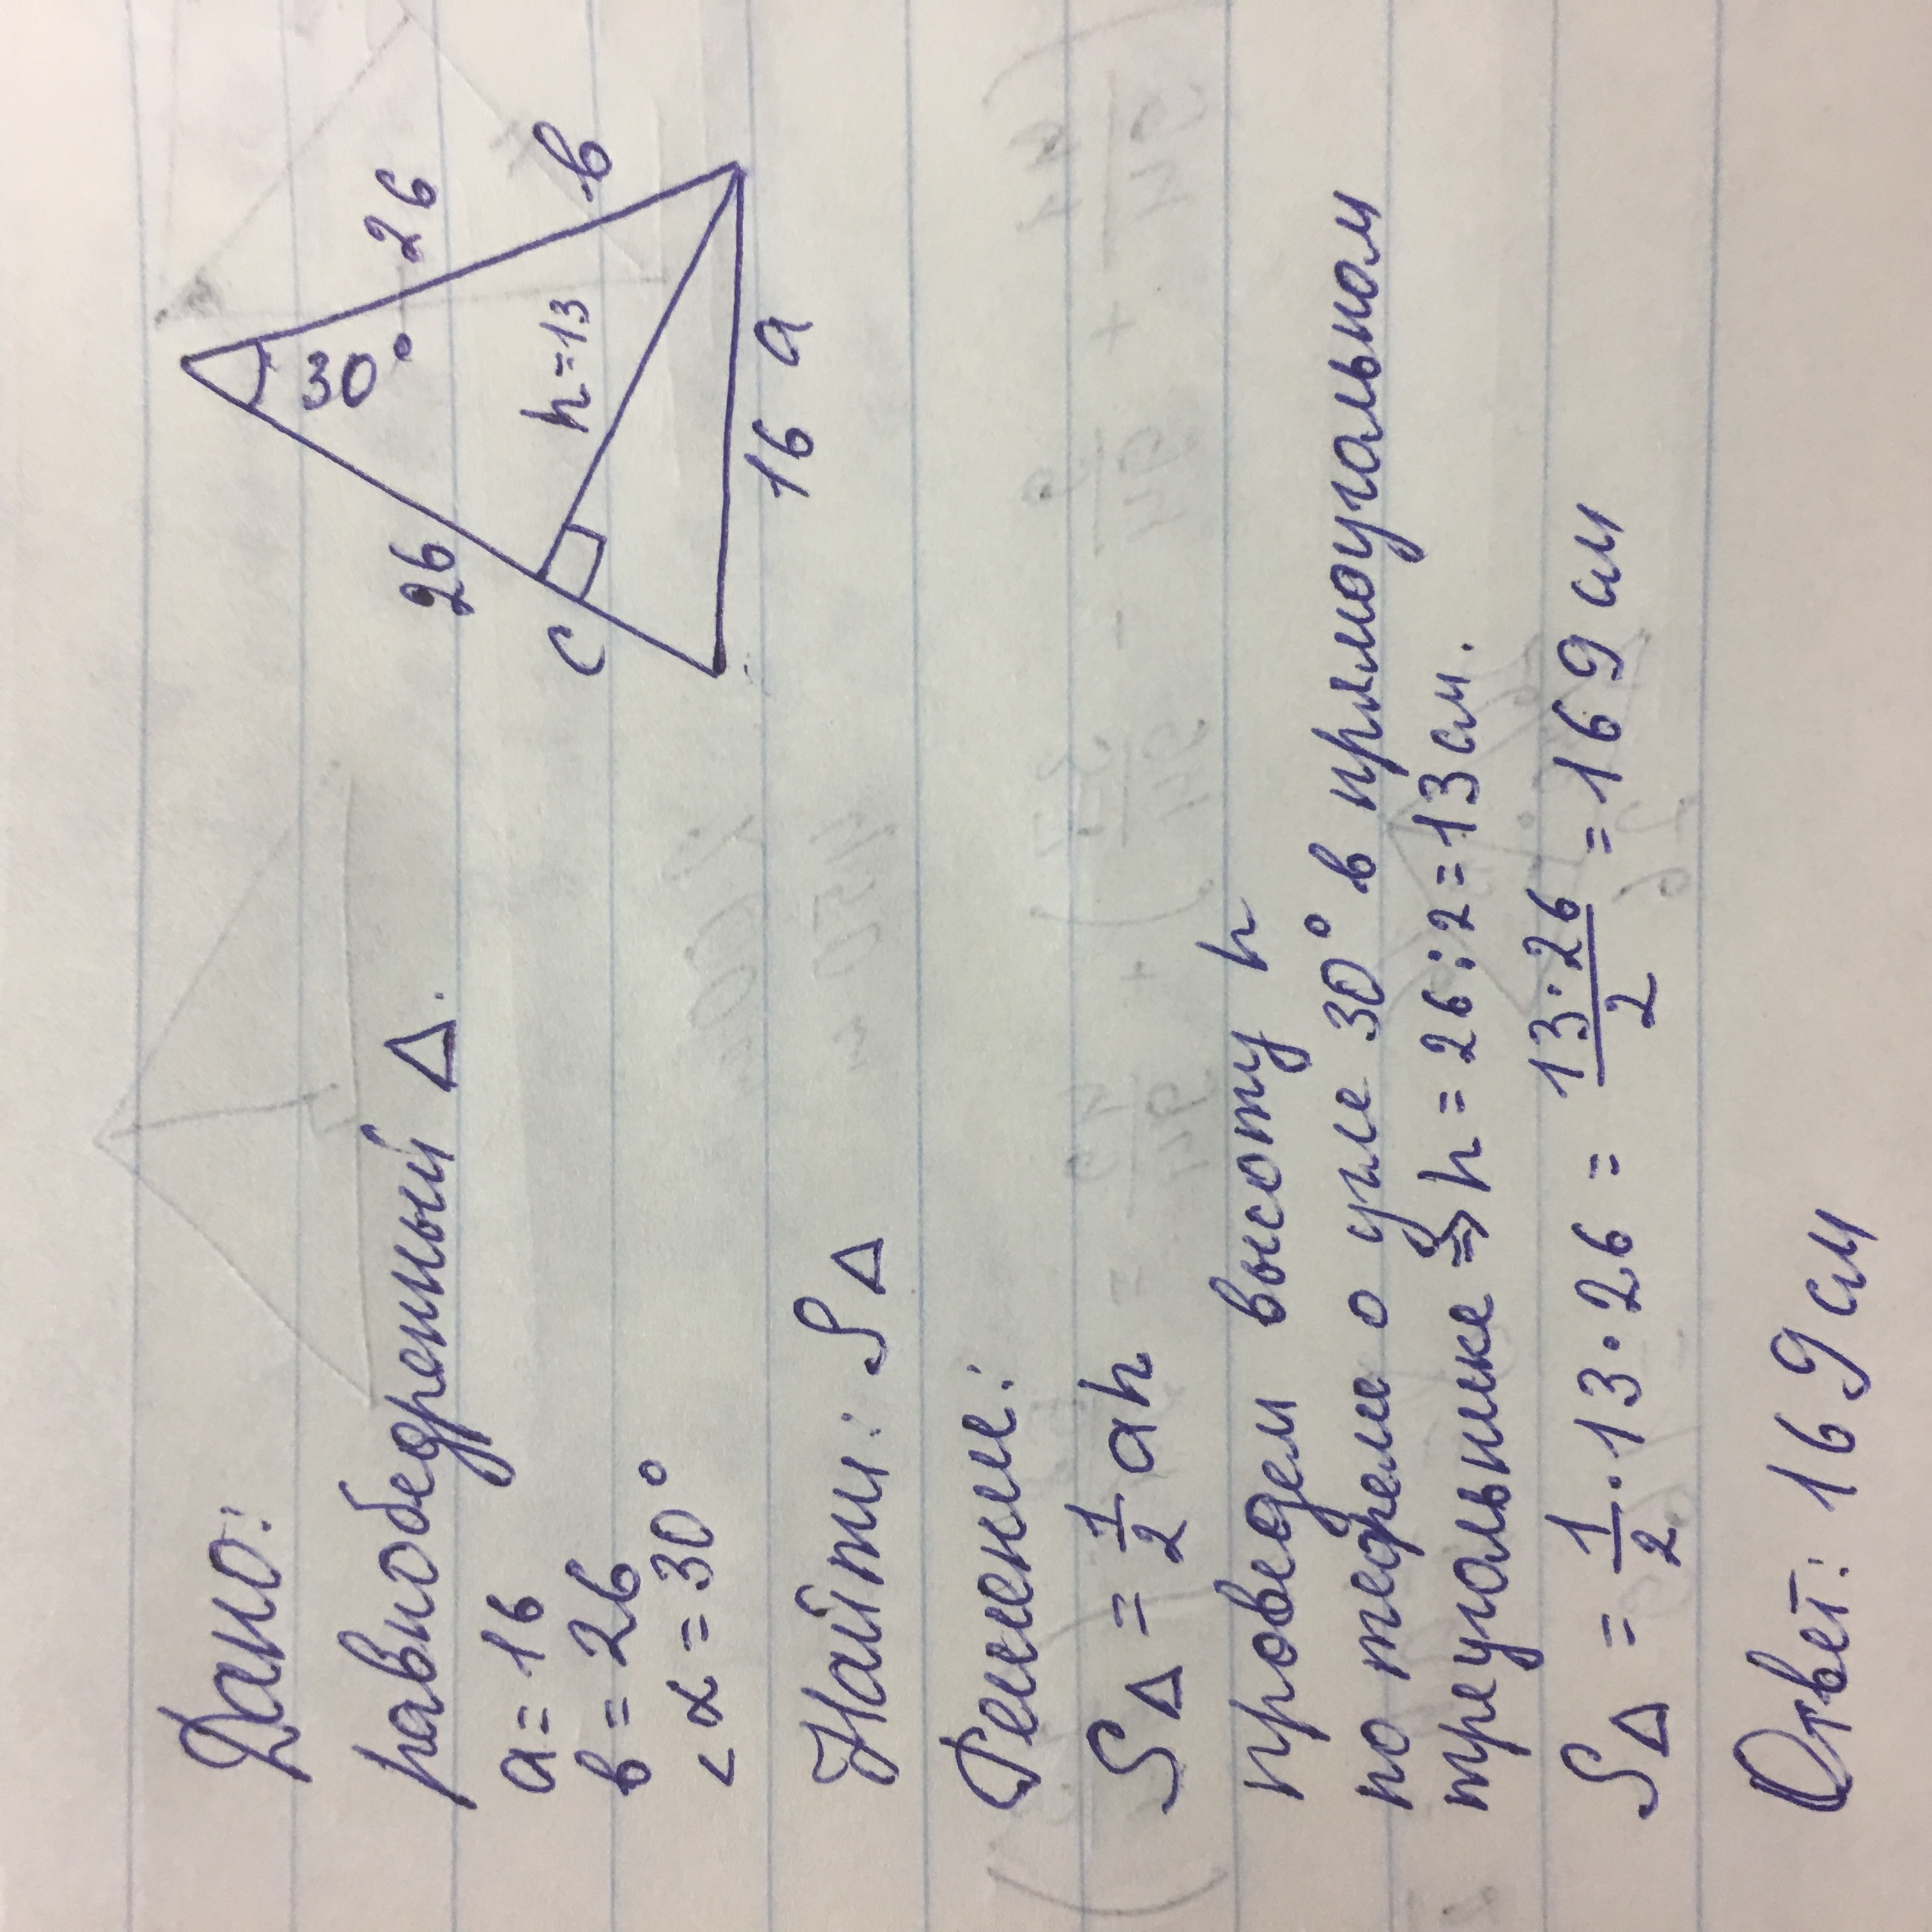 Дано:
равнобедренный Δ.
a = 16
в = 26
∠α = 30°
26
26
30°
в
h=13
c
16 a
Найти: SΔ
Решение:
SΔ = 1/2 ah
проведем высоту h
по теореме о угле 30° в прямоугольном
треугольнике => h = 26:2=13см.
SΔ = 1/2 · 13 · 26 = 13·26/2 = 169 см
Ответ: 169 см